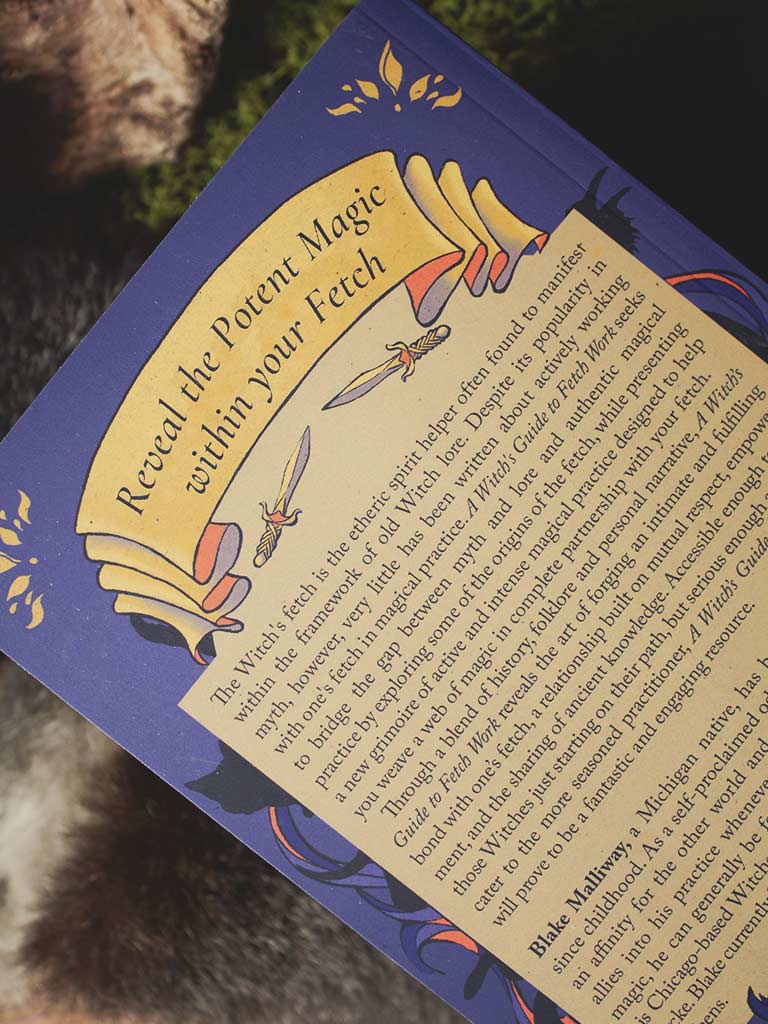 Reveal the Potent Magic
within your Fetch
The Witch's fetch is the etheric spirit helper often found to manifest
within the framework of old Witch lore. Despite its popularity in
myth, however, very little has been written about actively working
with one's fetch in magical practice. A Witch's Guide to Fetch Work seeks
to bridge the gap between myth and lore and authentic magical
practice by exploring some of the origins of the fetch, while presenting
a new grimoire of active and intense magical practice designed to help
you weave a web of magic in complete partnership with your fetch.
Through a blend of history, folklore and personal narrative, A Witch's
Guide to Fetch Work reveals the art of forging an intimate and fulfilling
bond with one's fetch, a relationship built on mutual respect, empower
ment, and the sharing of ancient knowledge. Accessible enough
those Witches just starting on their path, but serious enough
cater to the more seasoned practitioner, A Witch's Guide
will prove to be a fantastic and engaging resource.
Blake Malliway, a Michigan native, has
since childhood. As a self-proclaimed
an affinity for the other world and
allies into his practice whenever
magic, he can generally be
is Chicago-based
Blake currently